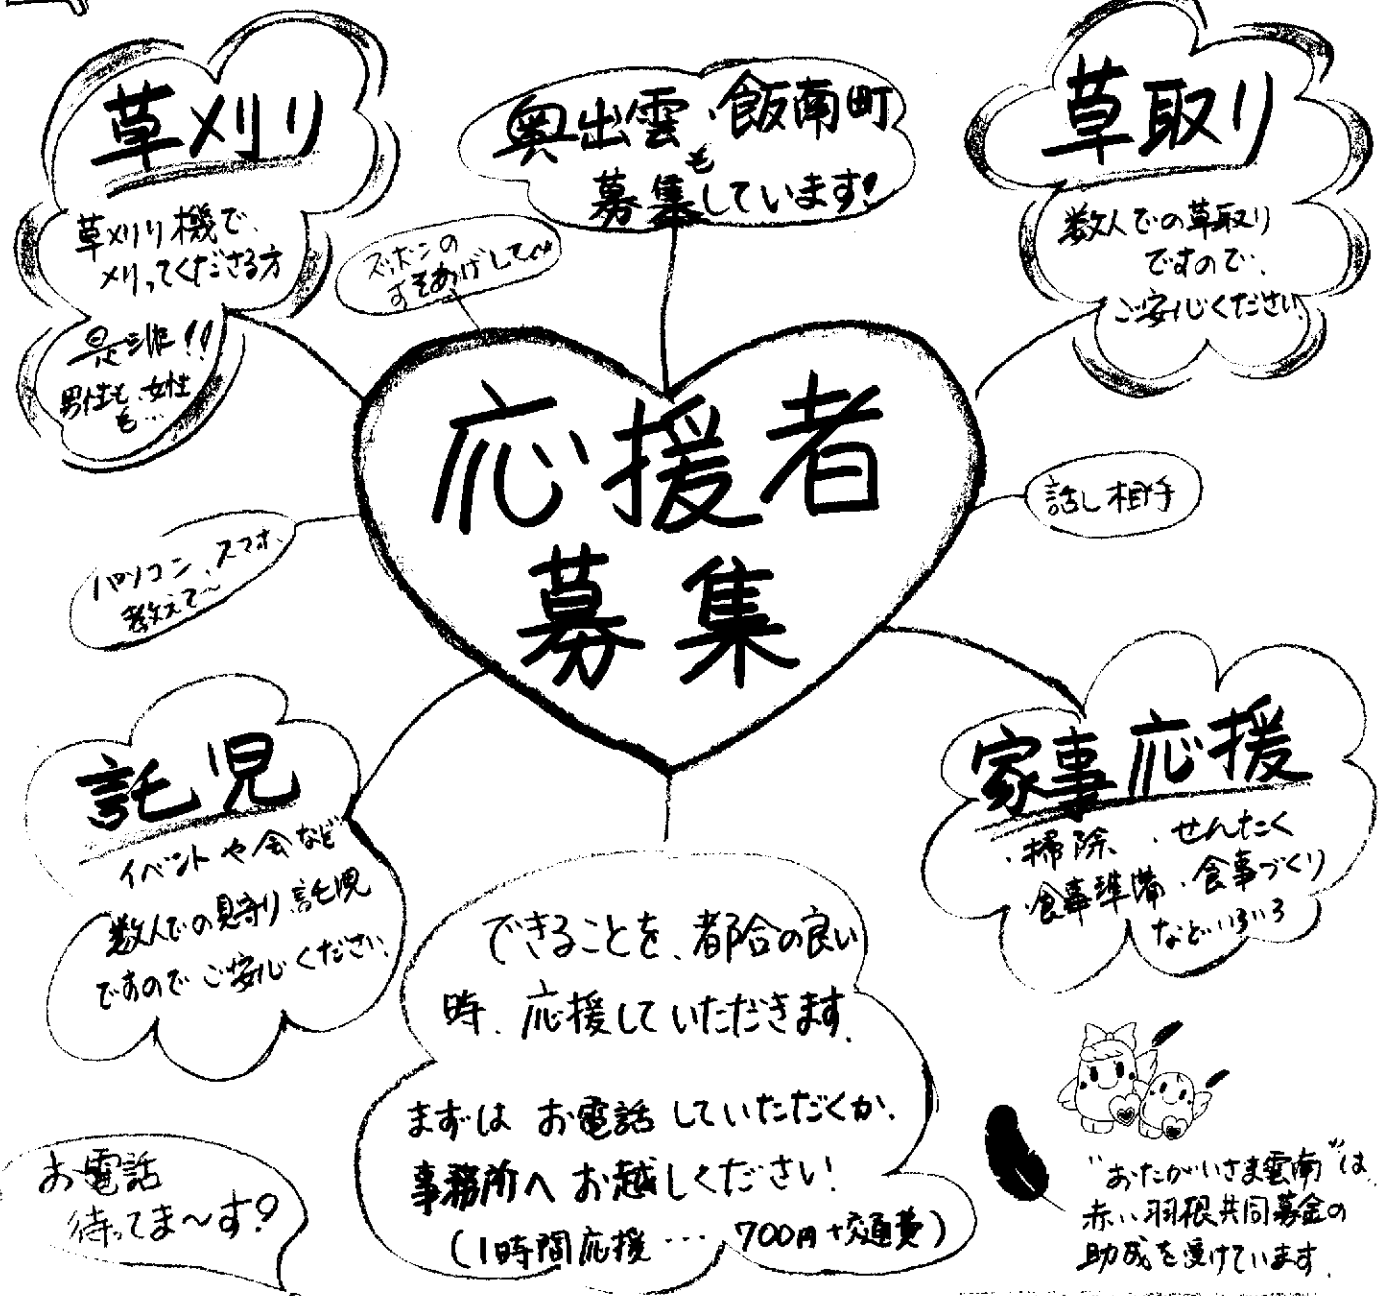 草刈り
草刈り機で、
刈ってくださる方
是非!!
男性も、女性
も…
奥出雲・飯南町
も
募集しています!
草取り
数人での草取り
ですので、
ご安心ください
ズボンの
すそあげして〜
応援者
募集
話し相手
パソコン、スマホ、
教えて〜
託児
イベントや会など
数人での見守り、託児
ですのでご安心ください。
家事応援
・掃除、・せんたく
・食事準備・食事づくり
などいろいろ
できることを、都合の良い
時、応援していただきます。
まずは お電話していただくか、
事務所へお越しください!
(1時間応援… 700円+交通費)
お電話
待ってま〜す?
"おたがいさま雲南"は、
赤い羽根共同募金の
助成を受けています。